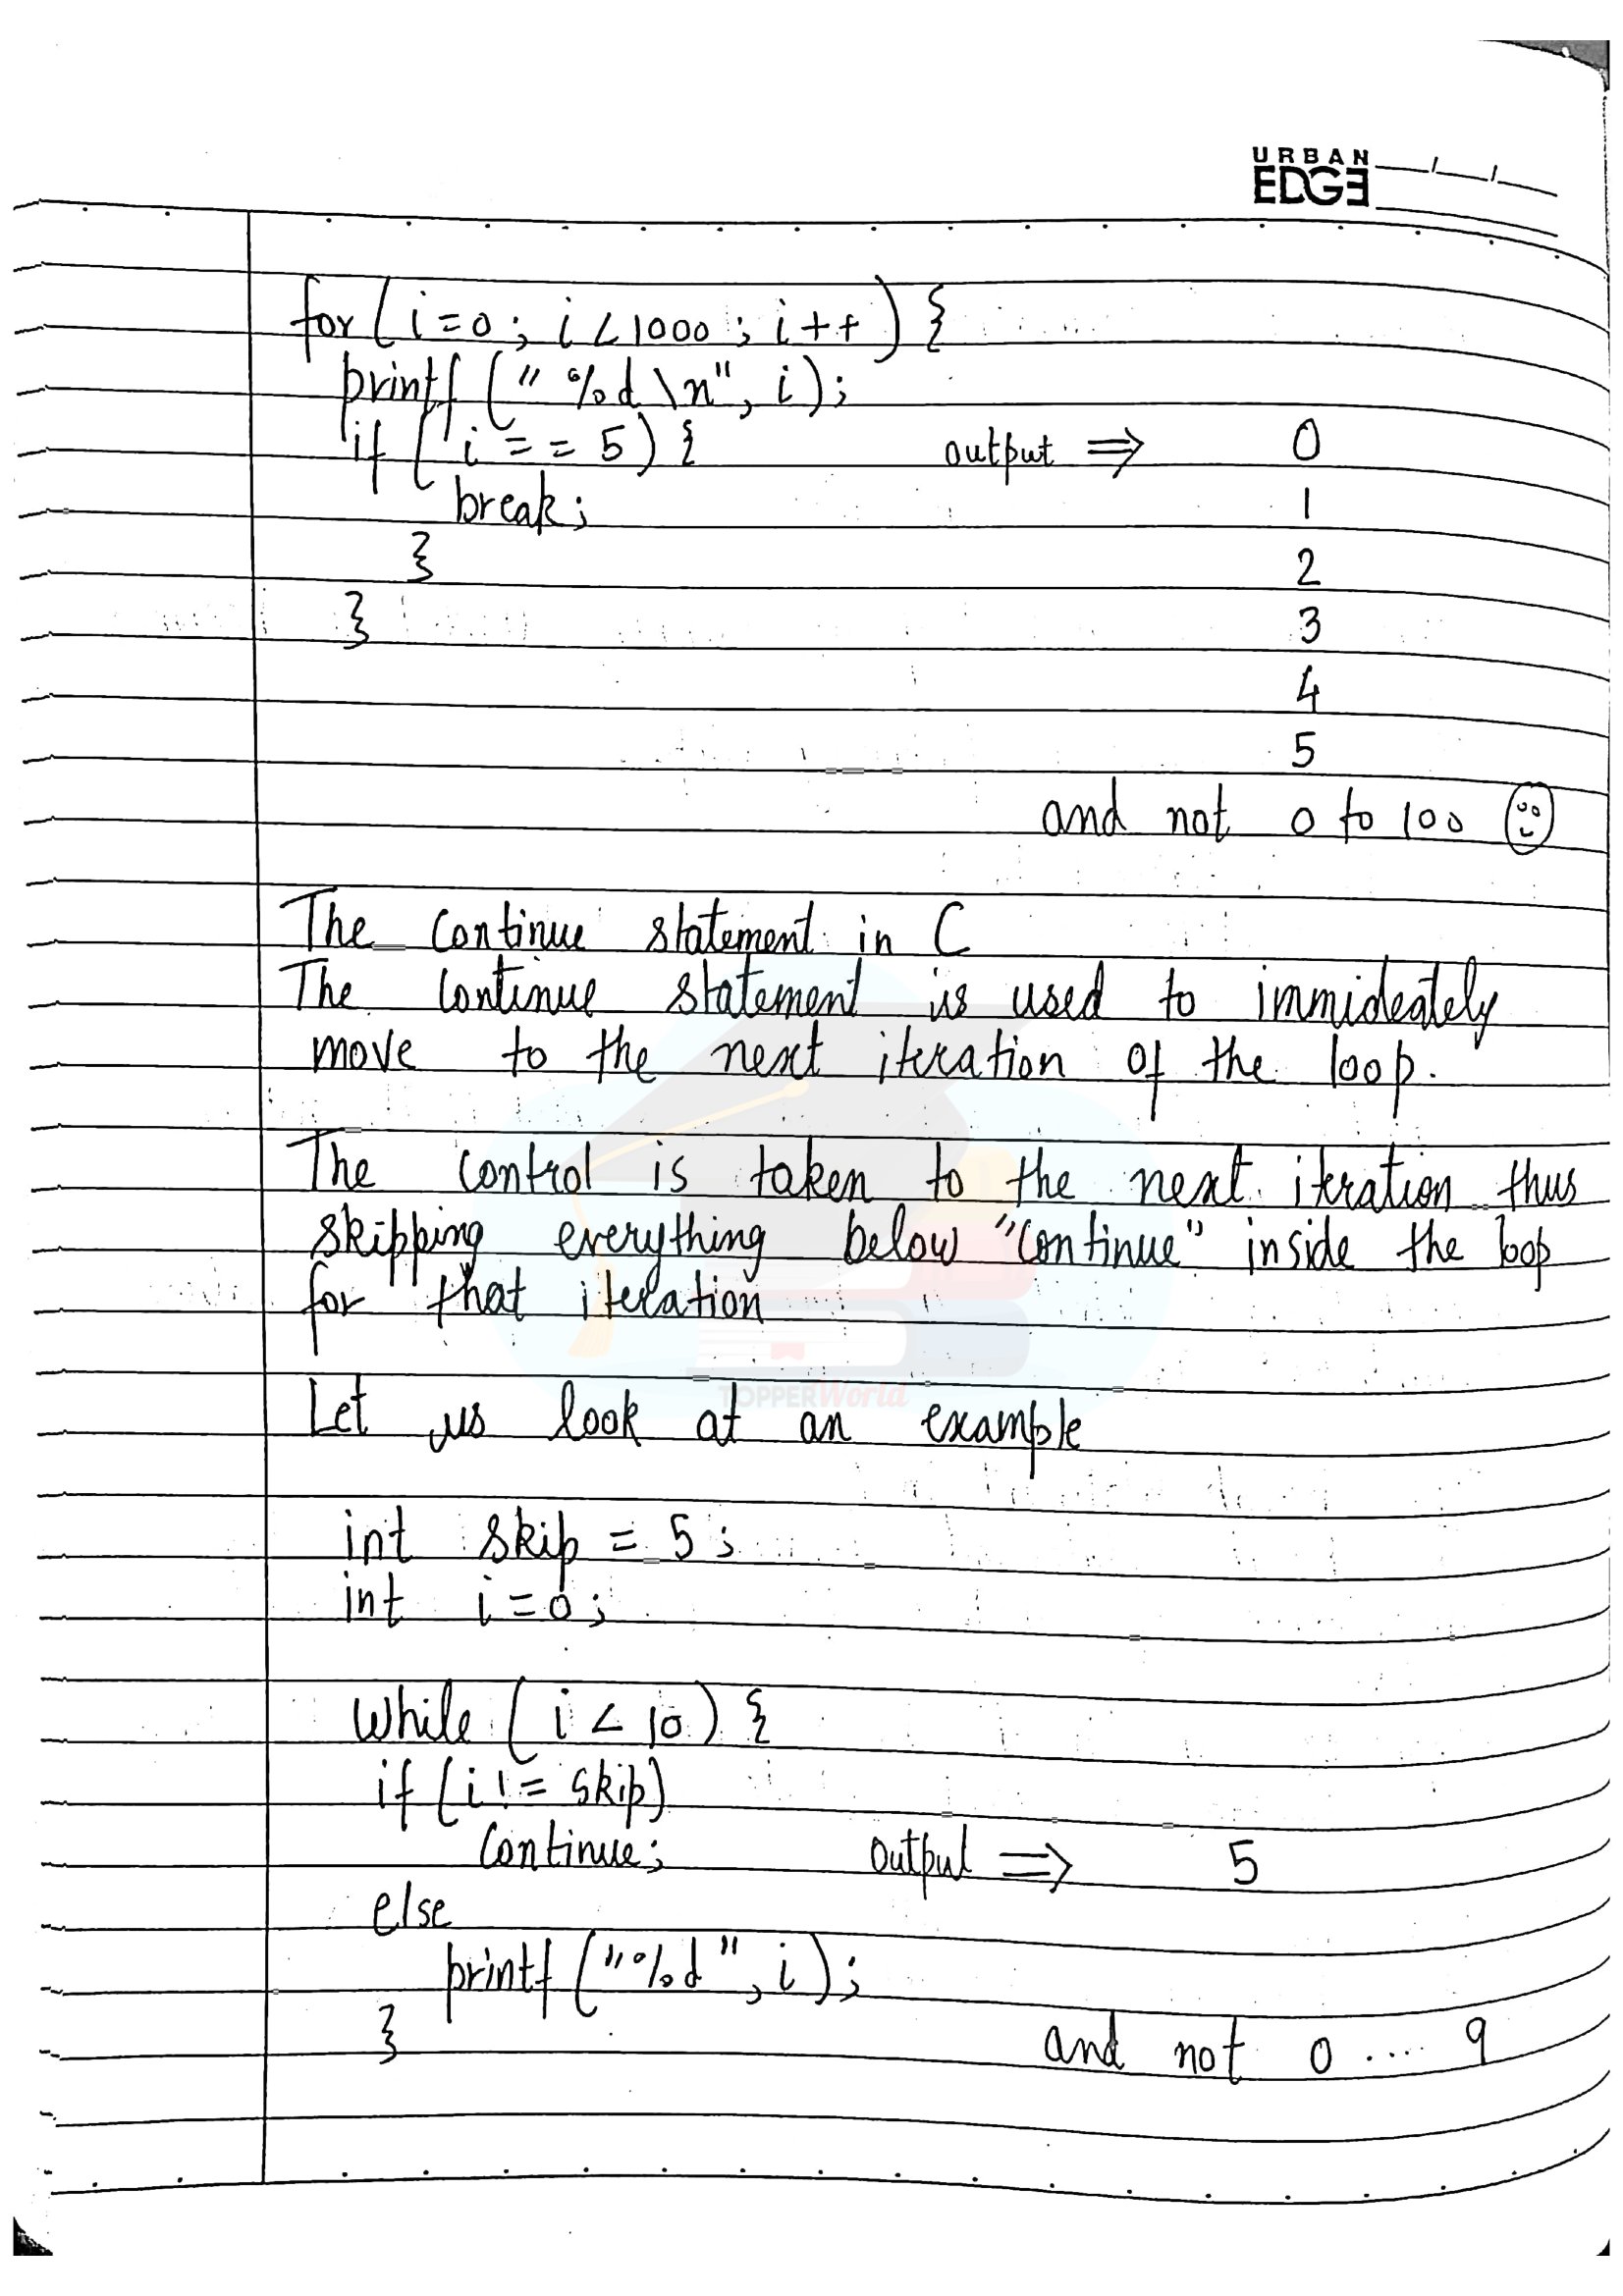 URBAN
EDGE
for (i=0; i<1000; i++) {
printf ("%d\n", i);
if (i == 5) {
output ⇒ 0
break;
1
}
2
}
3
4
5
and not 0 to 100
The continue statement in C
The continue statement is used to immideately
move to the next iteration of the loop.
The control is taken to the next iteration thus
skipping everything below "continue" inside the loop
for that iteration
TOPPERWorld
Let us look at an example
int skip = 5;
int i=0;
while (i < 10) {
if (i != skip)
continue; output ⇒ 5
else
printf ("%d", i);
}
and not 0 .... 9